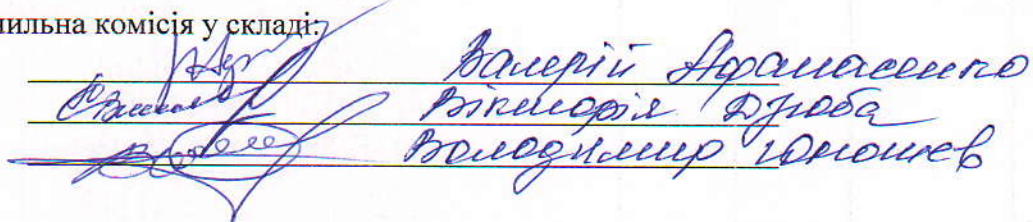 чильна комісія у складі:
Валерій Афанасенко
Вікторія Дзюба
Володимир Юношев